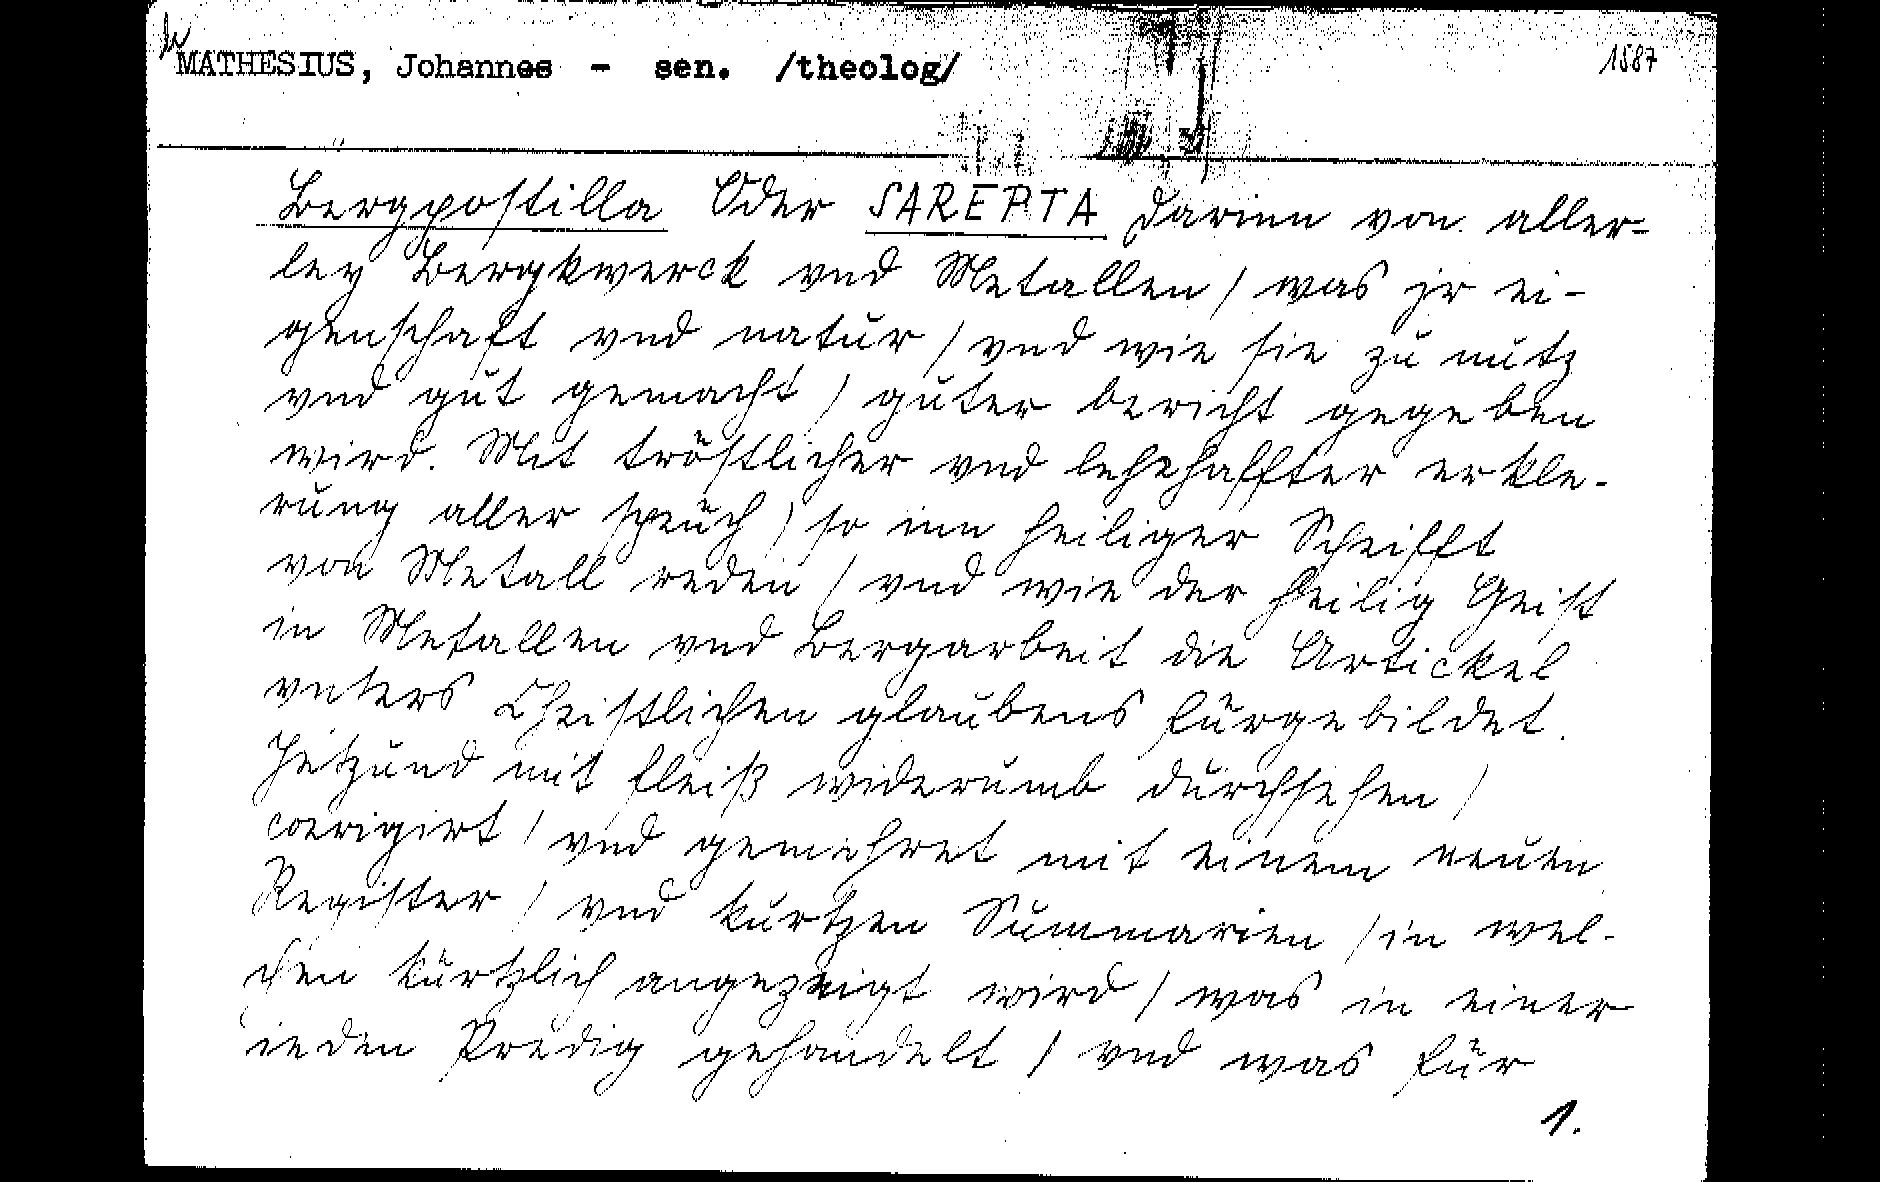 MATHESIUS, Johannes - sen. /theolog/ 1587
Bergpostilla Oder SAREPTA Darinn von aller-
ley Bergkwerck vnd Metallen / was jr ei-
genschafft vnd natur / vnd wie sie zu nutz
vnd gut gemacht / guter bericht gegeben
wird. Mit tröstlicher vnd lehrhaffter erkle-
rung aller sprüch / so inn heiliger Schrifft
von Metall reden / vnd wie der heilig Geist
in Metallen vnd Bergarbeit die Artickel
vnsers Christlichen glaubens fürgebildet.
Jetzund mit fleiß widerumb durchsehen /
corrigirt / vnd gemehret mit einem neuen
Register / vnd kurtzen Summarien / in wel-
chen kürtzlich angezeigt wird / was in einer
ieden Predig gehandelt / vnd was für
1.